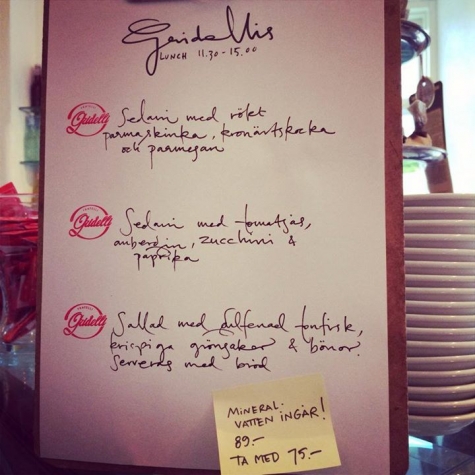 LUNCH 11.30 - 15.00
Sedani med rökt
parmaskinka, kronärtskocka
och parmesan
Sedani med tomatsås,
aubergin, zucchini &
paprika
Sallad med filfenad tonfisk,
krispiga grönsaker & bönor.
Serveras med bröd
MINERAL-
VATTEN INGÅR!
89:-
TA MED 75:-